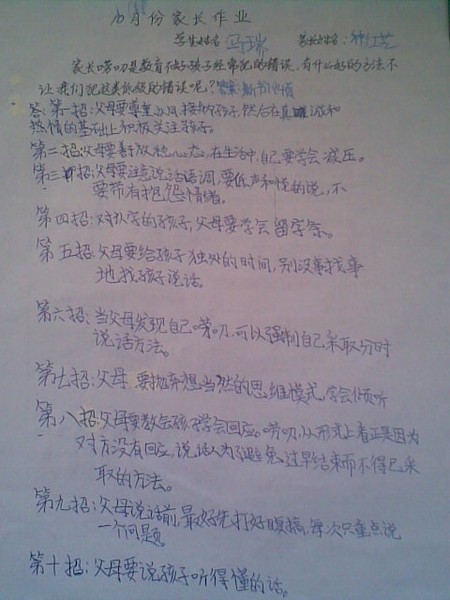 10月份家长作业
学生姓名:马瑞 家长姓名:
家长唠叨是教育不好孩子经常犯的错误,有什么好的方法不
让我们犯这类低级的错误呢?
答:第一招:父母要尊重、接纳孩子,然后在真诚和
热情的基础上积极关注孩子。
第二招:父母要善于放松心态,在生活中,自己要学会减压。
第三招:父母要注意说话语调,要低声和悦的说,不
要带有抱怨情绪。
第四招:对认字的孩子,父母要学会留字条。
第五招:父母要给孩子独处的时间,别没事找事
地找孩子说话。
第六招:当父母发现自己唠叨,可以强制自己采取分时
说话方法。
第七招:父母要抛弃想当然的思维模式,学会倾听
第八招:父母要教会孩子学会回应。唠叨,从形式上看正是因为
对方没有回应,说话人为了避免过早结束而不得已采
取的方法。
第九招:父母说话前,最好先打好腹稿,每次只重点说
一个问题
第十招:父母要说孩子听得懂的话。